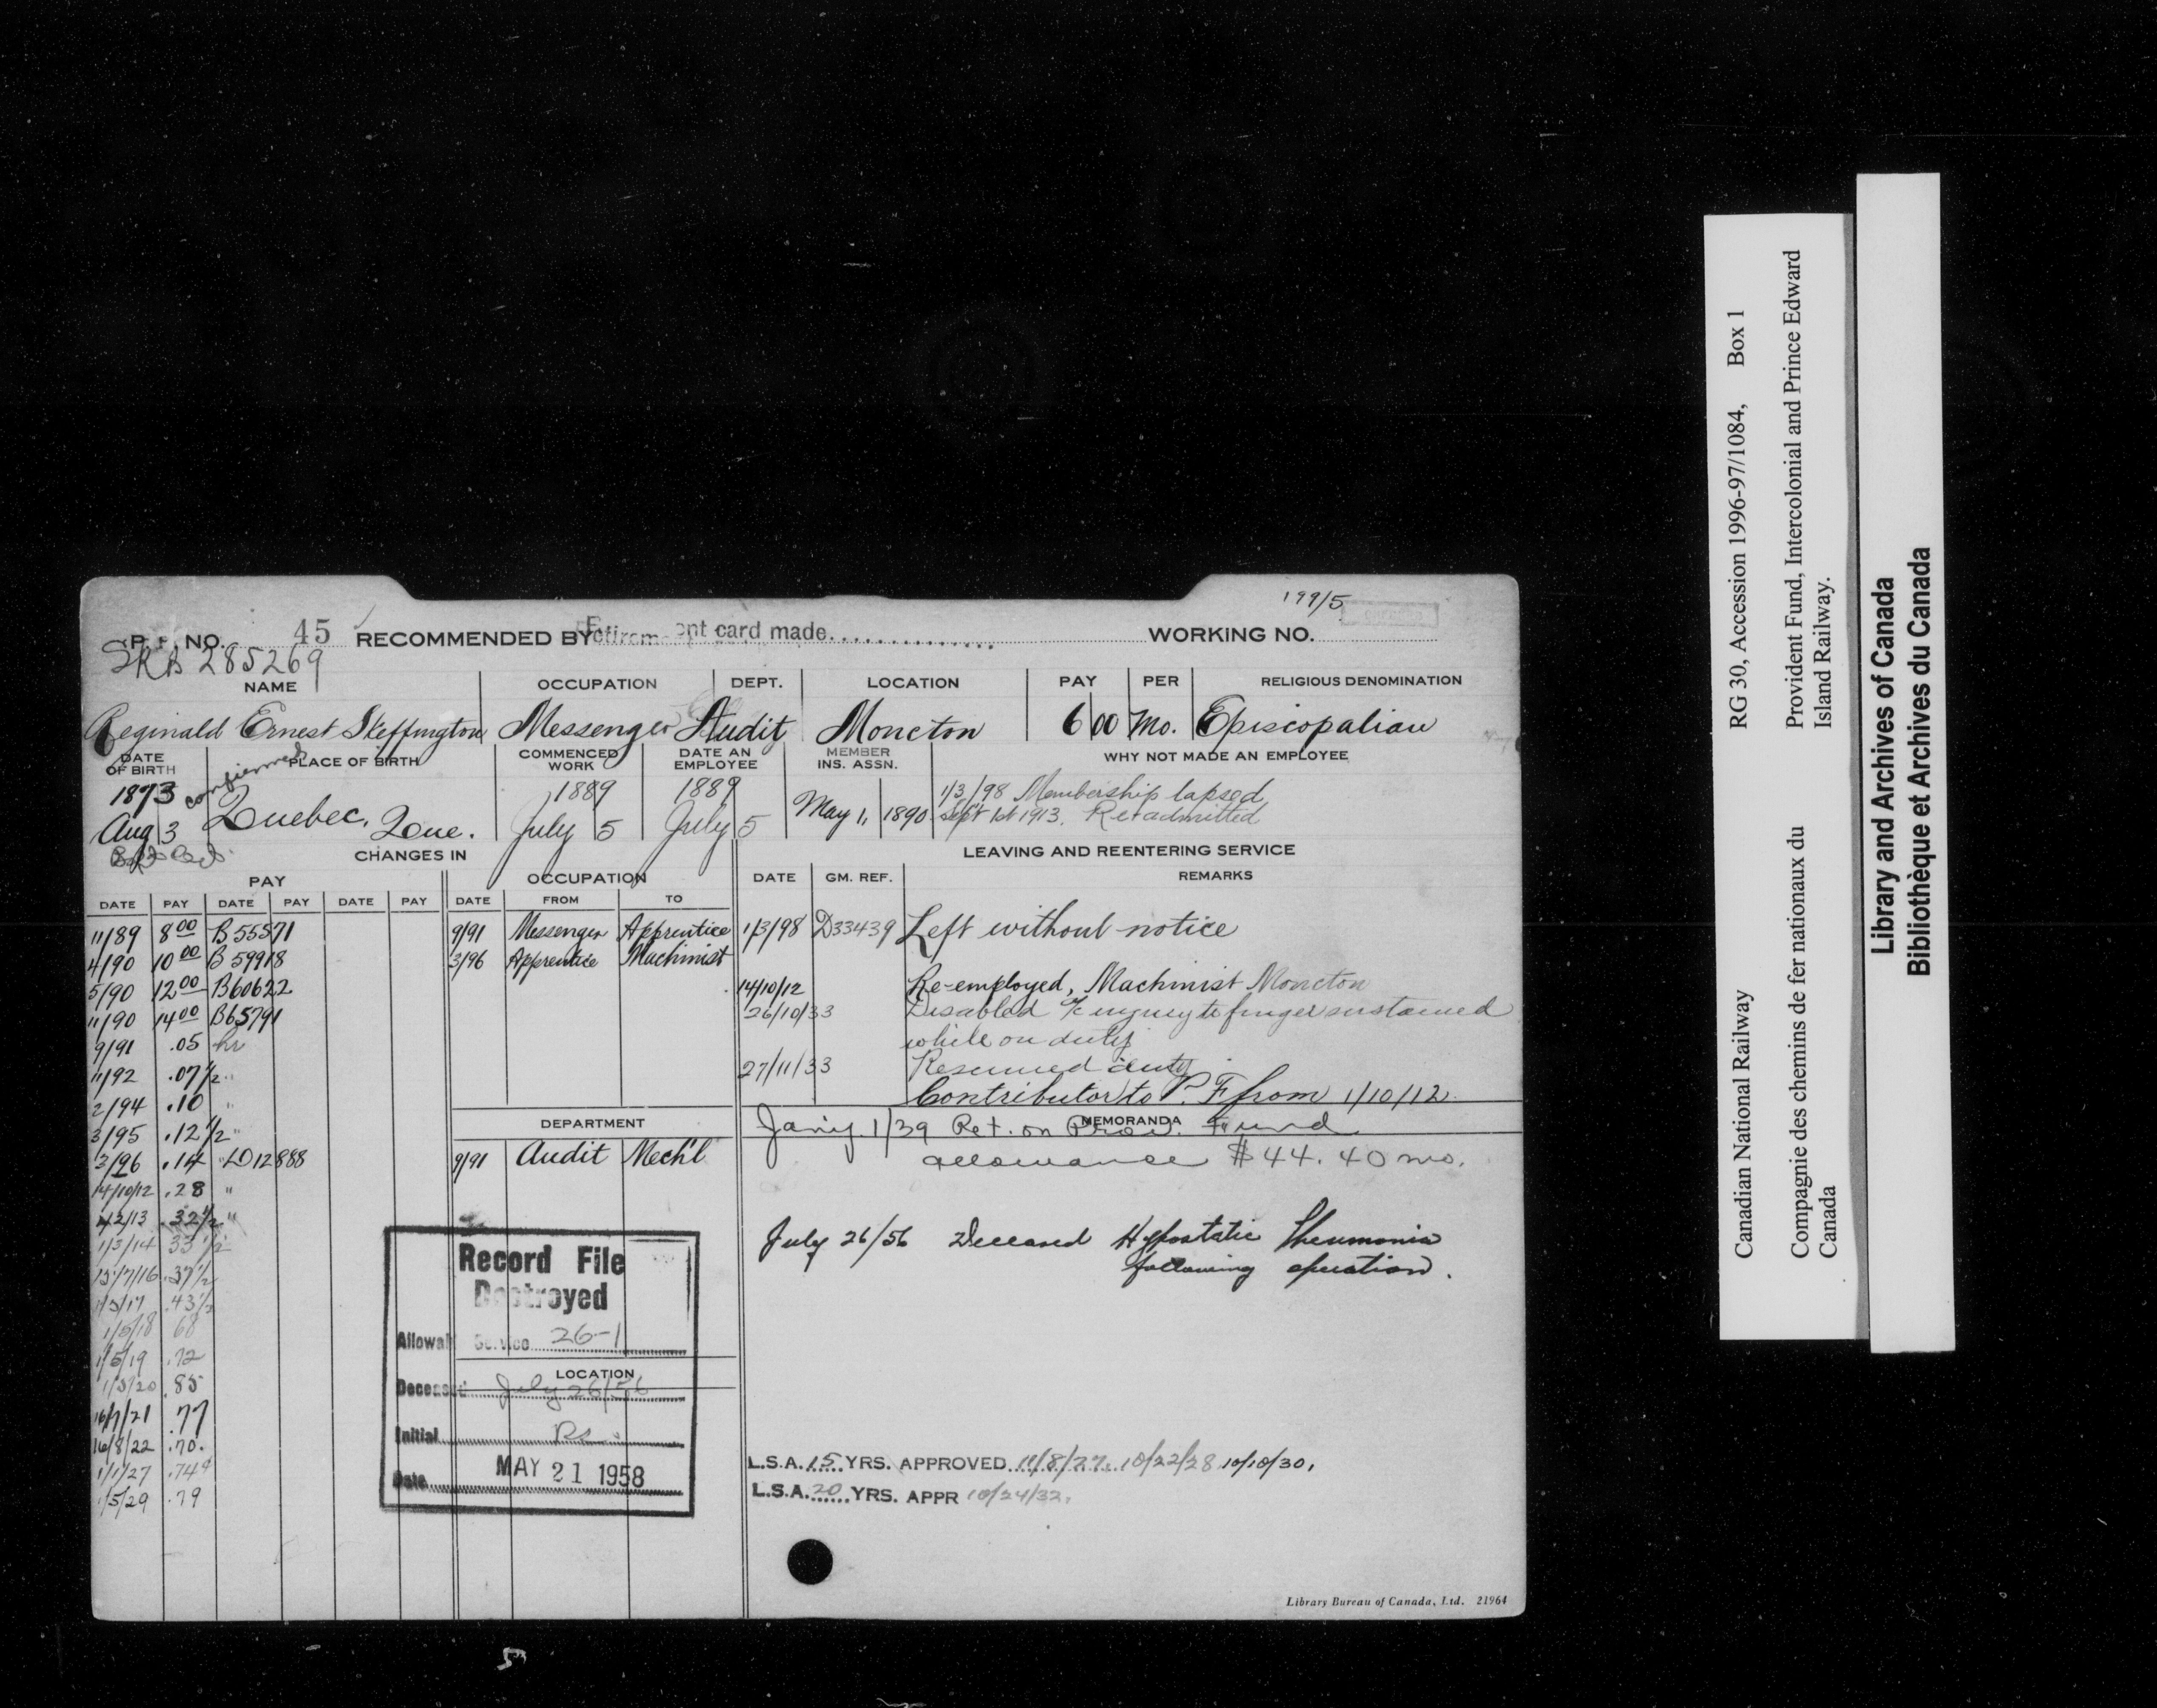 199/5
P. F. NO. 45 RECOMMENDED BY Retirement card made WORKING NO.
SRB 285269
NAME OCCUPATION DEPT. LOCATION PAY PER RELIGIOUS DENOMINATION
Reginald Ernest Skeffington Messenger Audit Moncton 6 00 Mo. Episcopalian
DATE OF BIRTH PLACE OF BIRTH COMMENCED WORK DATE AN EMPLOYEE MEMBER INS. ASSN. WHY NOT MADE AN EMPLOYEE
confirmed
1873 1889 1889 1/3/98 Membership lapsed
Aug 3 Quebec, Que. July 5 July 5 May 1, 1890 Sept 1st 1913. Re-admitted
CHANGES IN LEAVING AND REENTERING SERVICE
PAY OCCUPATION DATE GM. REF. REMARKS
DATE PAY DATE PAY DATE PAY DATE FROM TO
11/89 8 00 B 55571 9/91 Messenger Apprentice 1/3/98 D33439 Left without notice
4/90 10 00 B 59918 3/96 Apprentice Machinist
5/90 12 00 B60622 14/10/12 Re-employed, Machinist Moncton
11/90 14 00 B65791 26/10/33 Disabled a/c injury to finger sustained
9/91 .05 hr while on duty
11/92 .07 1/2 " 27/11/33 Resumed duty
2/94 .10 " Contributor to P. F. from 1/10/12
3/95 .12 1/2 " DEPARTMENT MEMORANDA
Jany. 1/39 Ret. on Prov. Fund
3/96 .14 " LD12888 9/91 Audit Mech'l allowance $44.40 mo.
14/10/12 .28 "
1/2/13 .32 1/2 "
1/3/14 33 1/2
July 26/56 Deceased Hypostatic Pneumonia
following operation.
15/7/16 .37 1/2
1/5/17 .43 1/2
1/5/18 68
1/5/19 .72
1/5/20 .85
16/7/21 .77
16/8/22 .70.
1/1/27 .74
1/5/29 .79
Record File
Destroyed
Service 26-1
LOCATION
Deceased July 26/56
Initial
Date MAY 21 1958
L.S.A. 15 YRS. APPROVED 11/8/27. 10/22/28 10/10/30,
L.S.A. 20 YRS. APPR 10/24/32.
Library Bureau of Canada, Ltd. 21964
5
Canadian National Railway RG 30, Accession 1996-97/1084, Box 1
Compagnie des chemins de fer nationaux du Canada
Provident Fund, Intercolonial and Prince Edward Island Railway.
Library and Archives of Canada
Bibliothèque et Archives du Canada